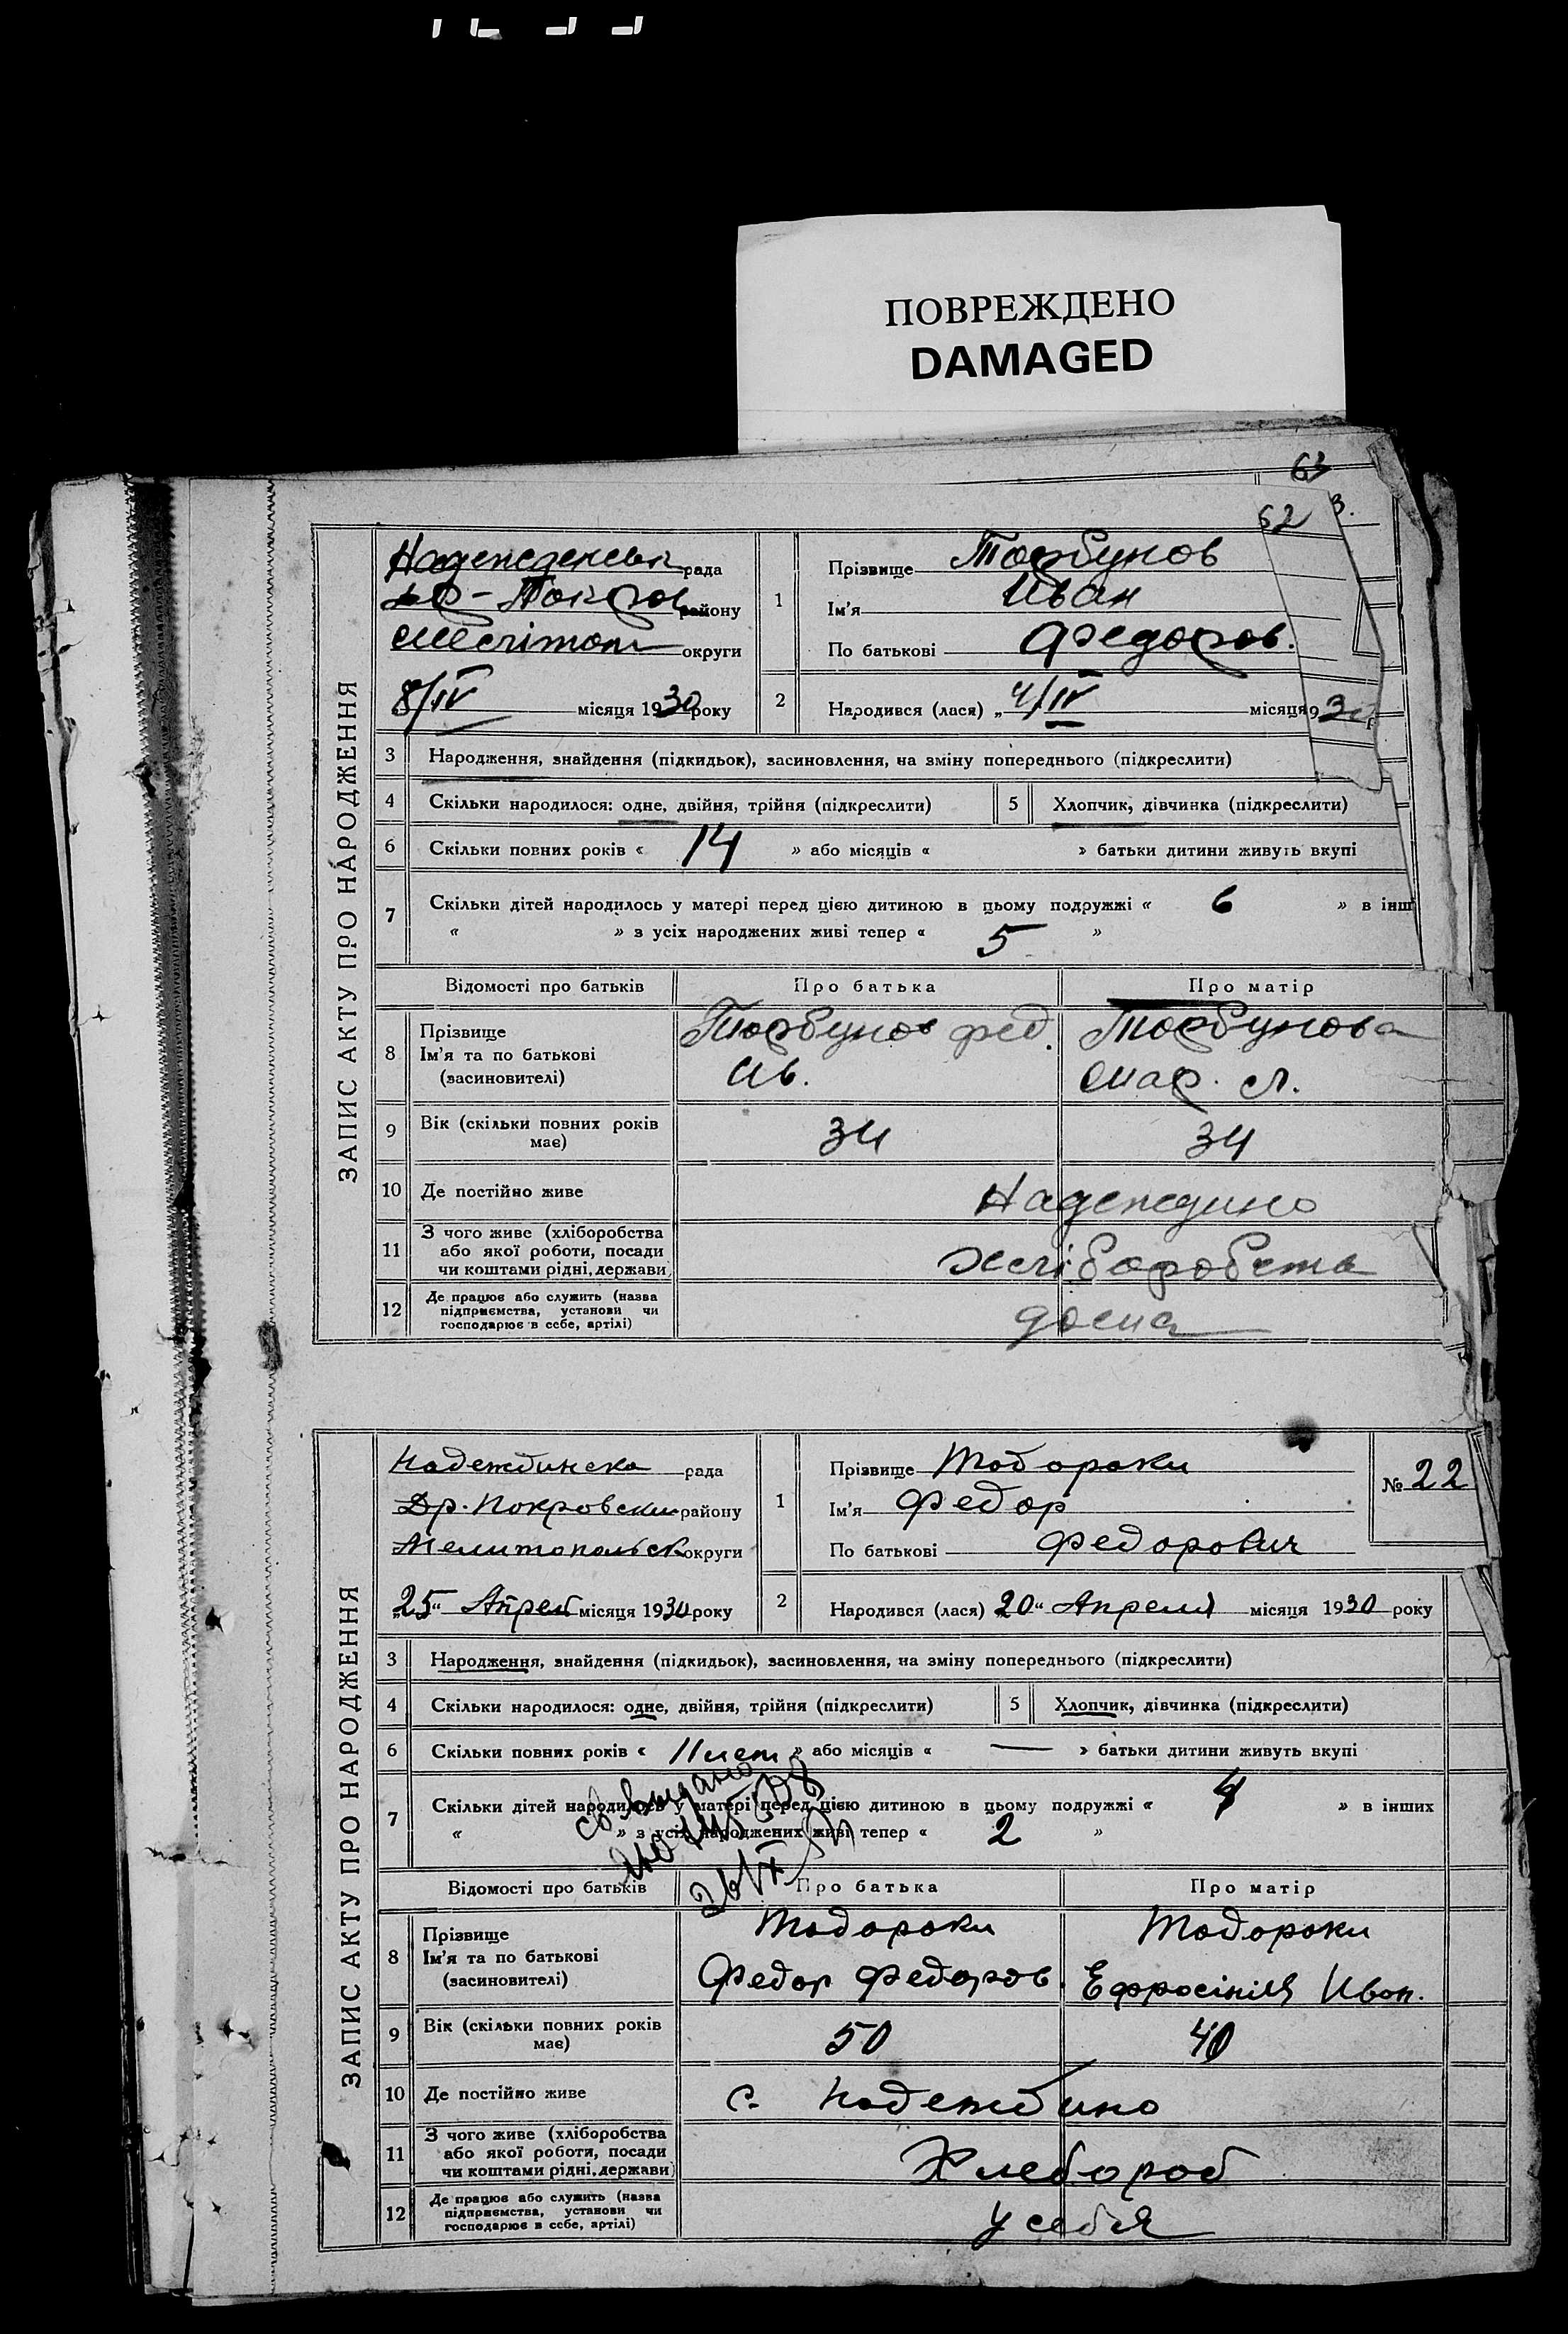 ПОВРЕЖДЕНО
DAMAGED
63
62
З.
ЗАПИС АКТУ ПРО НАРОДЖЕННЯ
Надежденськ рада
Др-Покров району
Мелітоп округи
8/IV місяця 1930 року
1
Прізвище Торбунов
Ім'я Иван
По батькові Федоров.
2
Народився (лася) „4/IV місяця 930
3 Народження, знайдення (підкидьок), засиновлення, на зміну попереднього (підкреслити)
4 Скільки народилося: одне, двійня, трійня (підкреслити) 5 Хлопчик, дівчинка (підкреслити)
6 Скільки повних років « 14 » або місяців « » батьки дитини живуть вкупі
7 Скільки дітей народилось у матері перед цією дитиною в цьому подружжі « 6 » в інш
« » з усіх народжених живі тепер « 5 »
Відомості про батьків Про батька Про матір
8 Прізвище
Ім'я та по батькові
(засиновителі)
Торбунов Фед.
Ив.
Торбунова
Мар. Л.
9 Вік (скільки повних років має) 34 34
10 Де постійно живе Надеждино
11 З чого живе (хліборобства
або якої роботи, посади
чи коштами рідні, держави)
хліборобств
12 Де працює або служить (назва
підприємства, установи чи
господарює в себе, артілі)
дома
ЗАПИС АКТУ ПРО НАРОДЖЕННЯ
Надеждинска рада
Др. Покровски району
Мелитопольск округи
„25“ Апрел місяця 1930 року
1
Прізвище Тодораки
Ім'я Федор
По батькові Федорович
№ 22
2
Народився (лася) „20“ Апреля місяця 1930 року
3 Народження, знайдення (підкидьок), засиновлення, на зміну попереднього (підкреслити)
4 Скільки народилося: одне, двійня, трійня (підкреслити) 5 Хлопчик, дівчинка (підкреслити)
6 Скільки повних років « 11 лет » або місяців « — » батьки дитини живуть вкупі
7 Скільки дітей народилось у матері перед цією дитиною в цьому подружжі « 4 » в інших
« » з усіх народжених живі тепер « 2 »
св выдано
Відомості про батьків Про батька Про матір
8 Прізвище
Ім'я та по батькові
(засиновителі)
Тодораки
Федор Федоров.
Тодораки
Ефросінія Иван.
9 Вік (скільки повних років має) 50 40
10 Де постійно живе с. Надеждино
11 З чого живе (хліборобства
або якої роботи, посади
чи коштами рідні, держави)
Хлебороб
12 Де працює або служить (назва
підприємства, установи чи
господарює в себе, артілі)
у себя